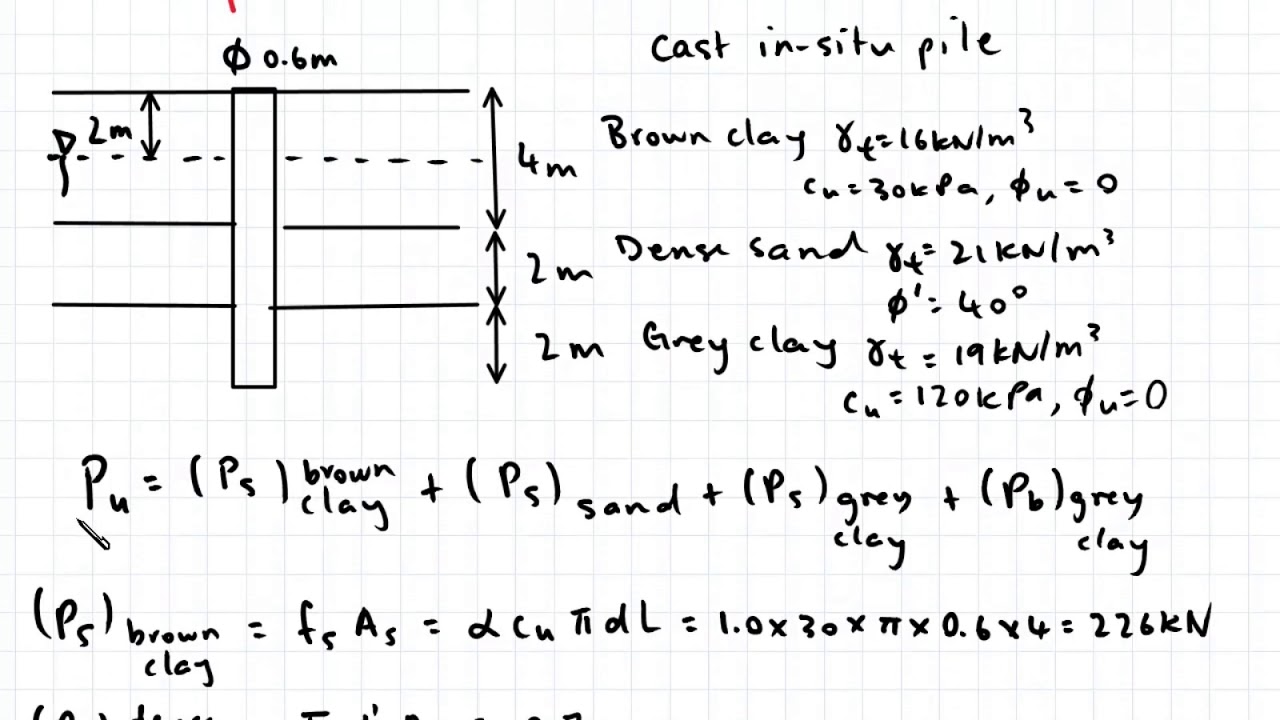 φ 0.6m
cast in-situ pile
2m
4m
Brown clay γt=16kN/m³
cu=30kPa, φu=0
2m
Dense sand γt=21kN/m³
φ'=40°
2m
Grey clay γt=19kN/m³
cu=120kPa, φu=0
Pu = (Ps) brown clay + (Ps) sand + (Ps) grey clay + (Pb) grey clay
(Ps) brown clay = fs As = α cu π d L = 1.0 × 30 × π × 0.6 × 4 = 226kN